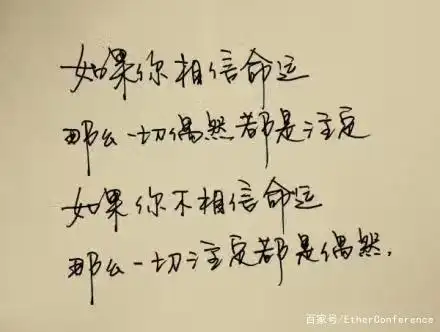 如果你相信命运
那么一切偶然都是注定
如果你不相信命运
那么一切注定都是偶然.
百家号/EtherConference